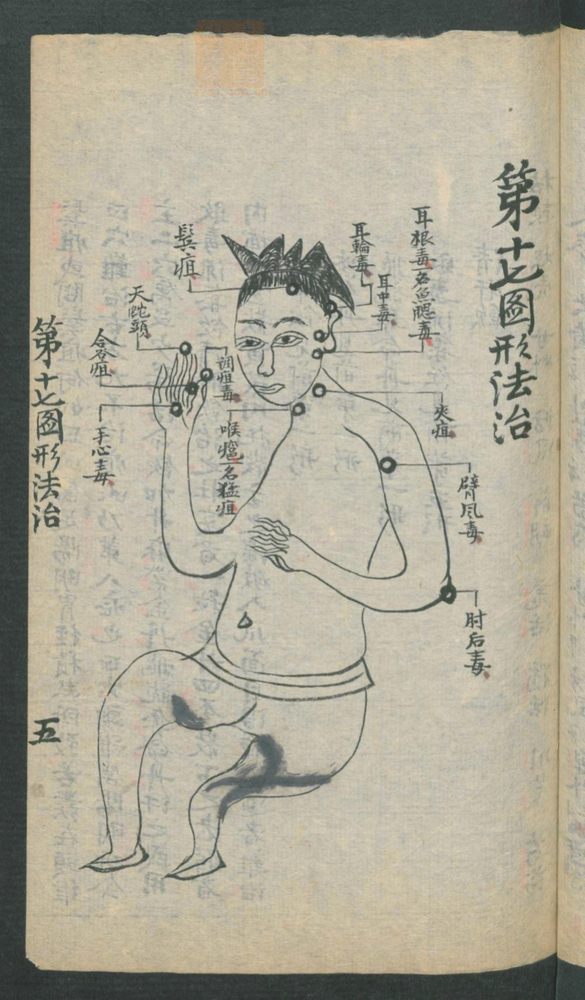 第十七图形法治
耳根毒一名鱼腮毒
耳中毒
耳輪毒
鬓疽
天蛇頭
合谷疽
手心毒
調疽毒
喉瘤一名猛疽
夾疽
臂风毒
肘后毒
第十七图形法治
五